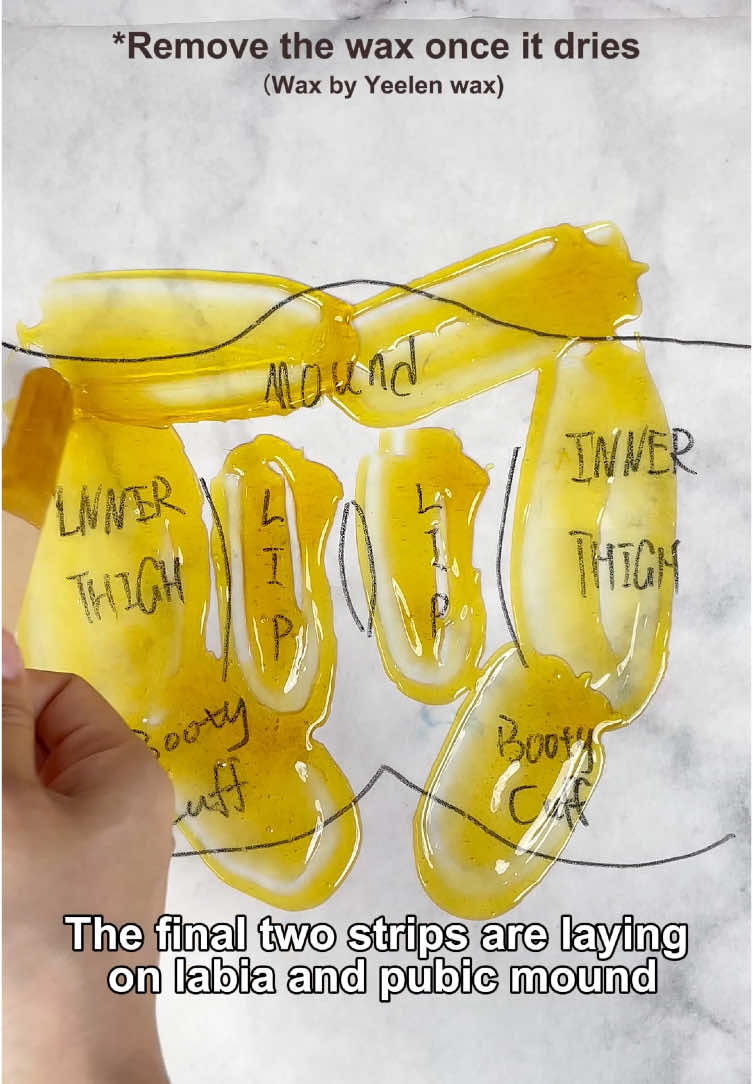 *Remove the wax once it dries
(Wax by Yeelen wax)
Mound
INNER
THIGH
LIP
LIP
INNER
THIGH
Booty
Cuff
The final two strips are laying
on labia and pubic mound